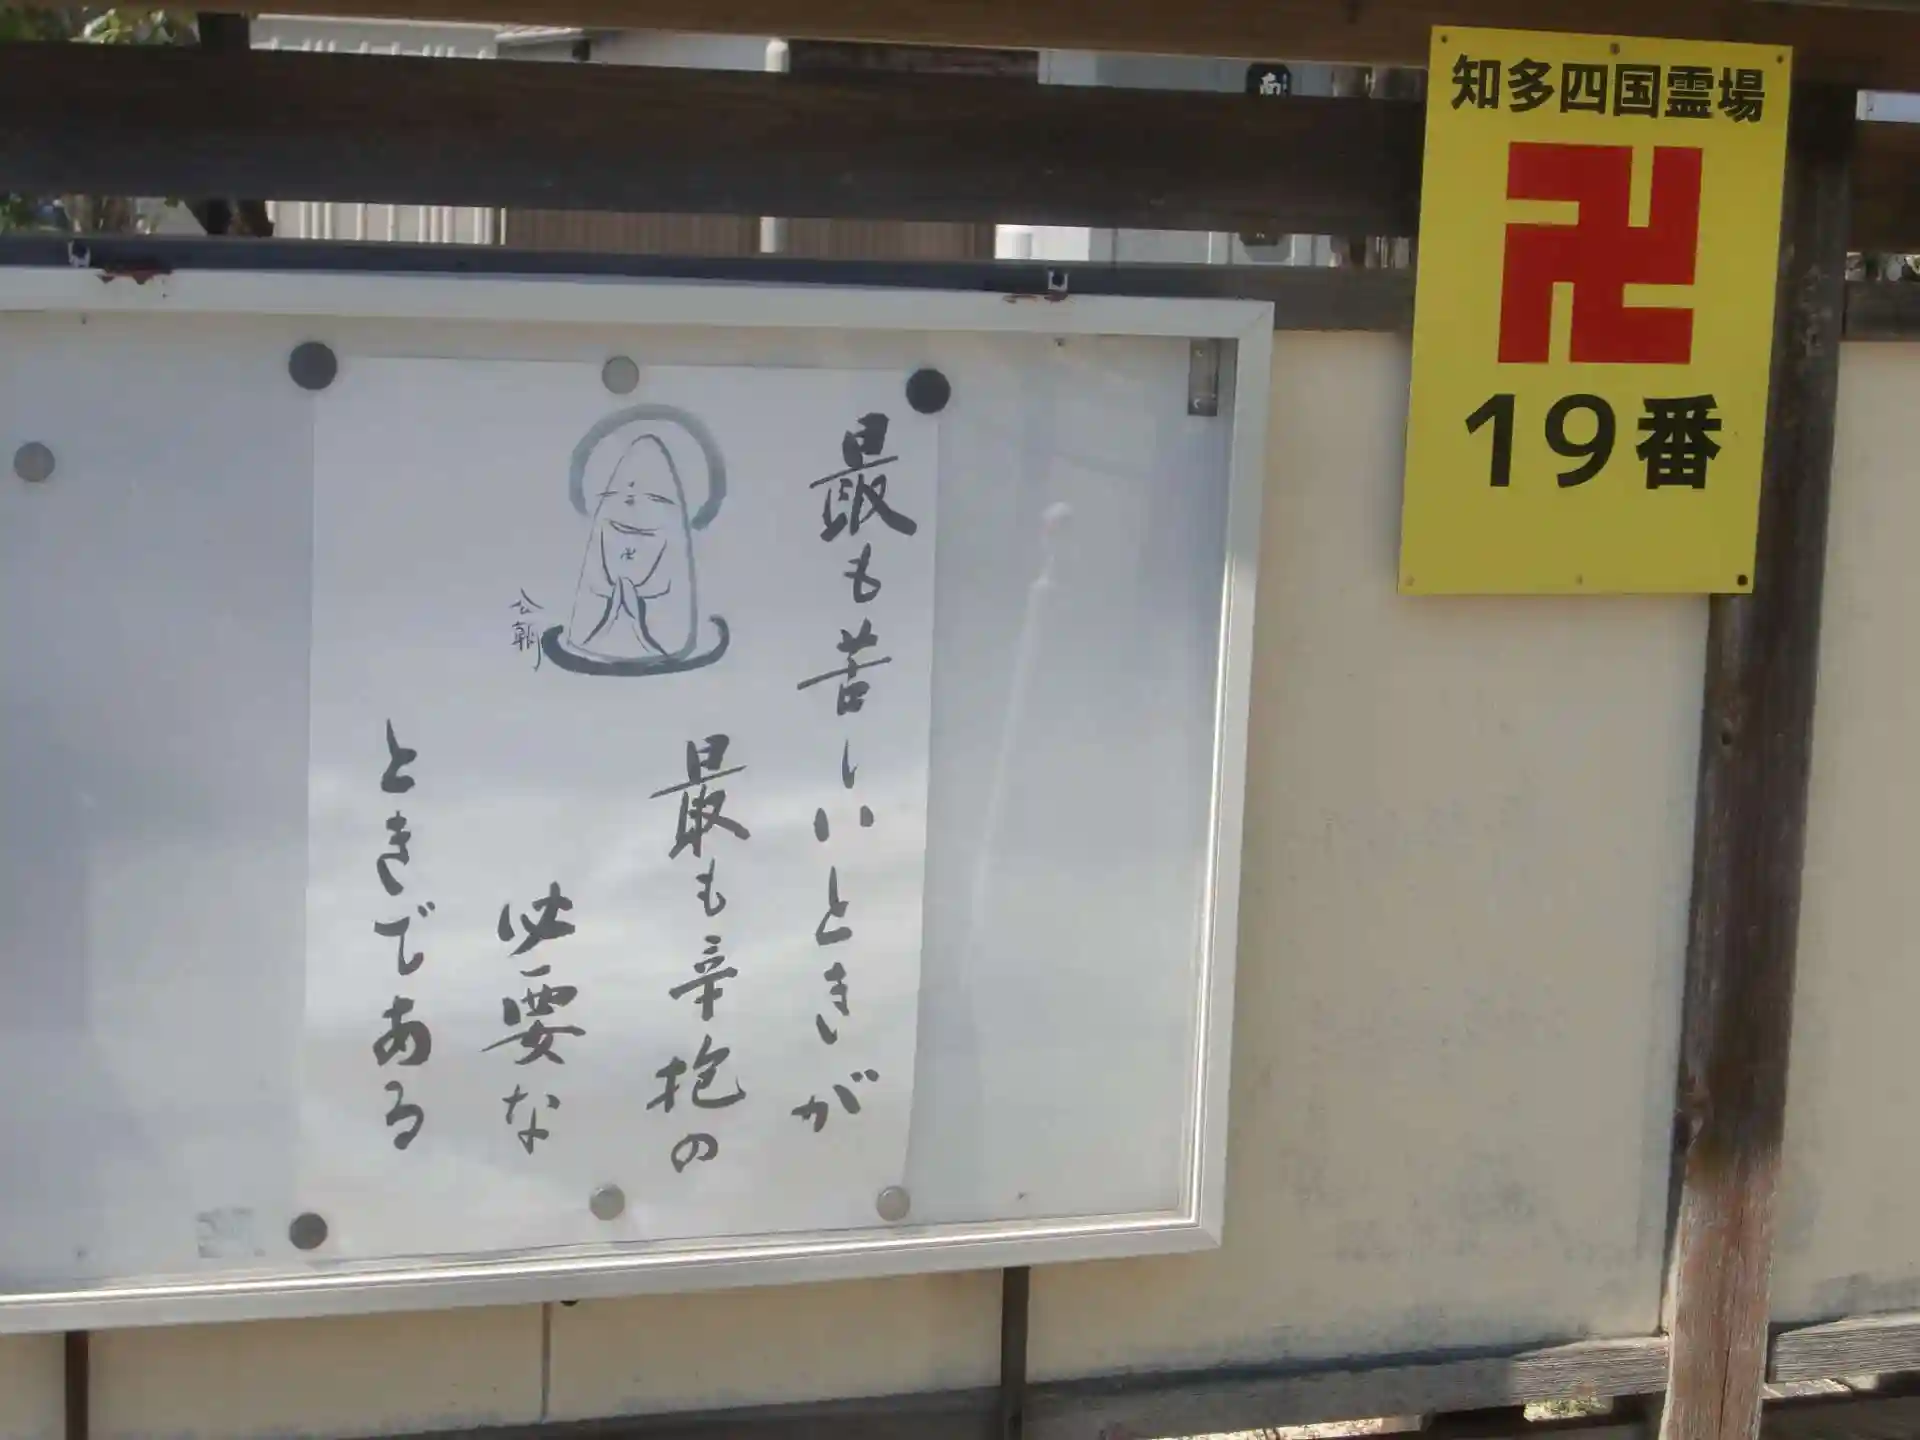 知多四国霊場
卍
19番
最も苦しいときが
最も辛抱の
必要な
ときである
卍
公朝